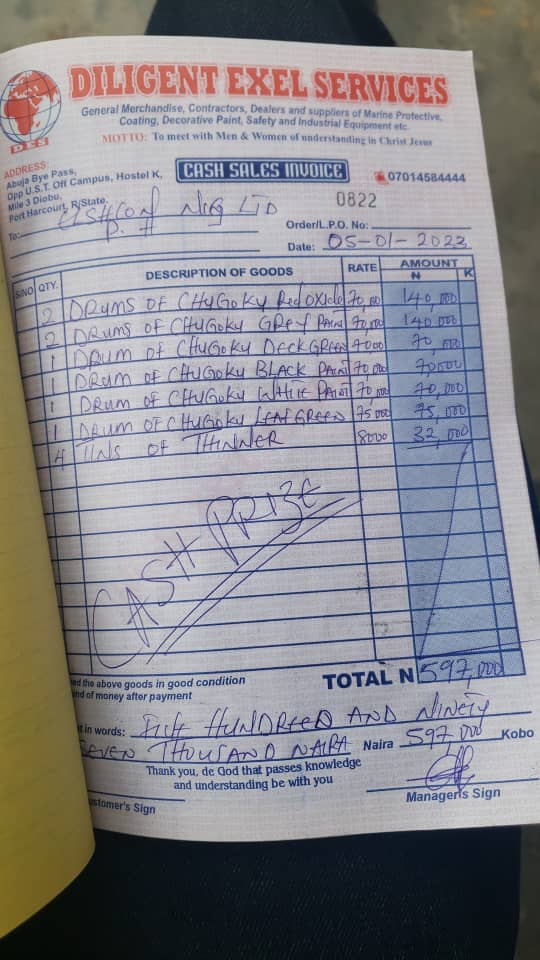 DILIGENT EXEL SERVICES
General Merchandise, Contractors, Dealers and suppliers of Marine Protective,
Coating, Decorative Paint, Safety and Industrial Equipment etc.
MOTTO: To meet with Men & Women of understanding in Christ Jesus
DES
ADDRESS:
Abuja Bye Pass,
Opp U.S.T. Off Campus, Hostel K,
Mile 3 Diobu,
Port Harcourt, R/State.
CASH SALES INVOICE
07014584444
0822
To: NIG LTD
P. H
Order/L.P.O. No:
Date: 05-01-2023
S/NO QTY. DESCRIPTION OF GOODS RATE AMOUNT
N K
2 DRUMS OF CHUGOKU Red OXIDE 70,000 140,000
2 DRUMS OF CHUGOKU GREY PAINT 70,000 140,000
1 DRUM OF CHUGOKU DECK GREEN 70,000
1 DRUM OF CHUGOKU BLACK PAINT 70,000 70,000
1 DRUM OF CHUGOKU WHITE PAINT 70,000 70,000
1 DRUM OF CHUGOKU LEAF GREEN 75,000 75,000
4 TINS OF THINNER 8000 32,000
CASH PRIZE
ed the above goods in good condition
nd of money after payment
TOTAL N 597,000
in words: HUNDREED AND NINETY
SEVEN THOUSAND NAIRA Naira 597,000 Kobo
Thank you, de God that passes knowledge
and understanding be with you
ustomer's Sign
Manager's Sign